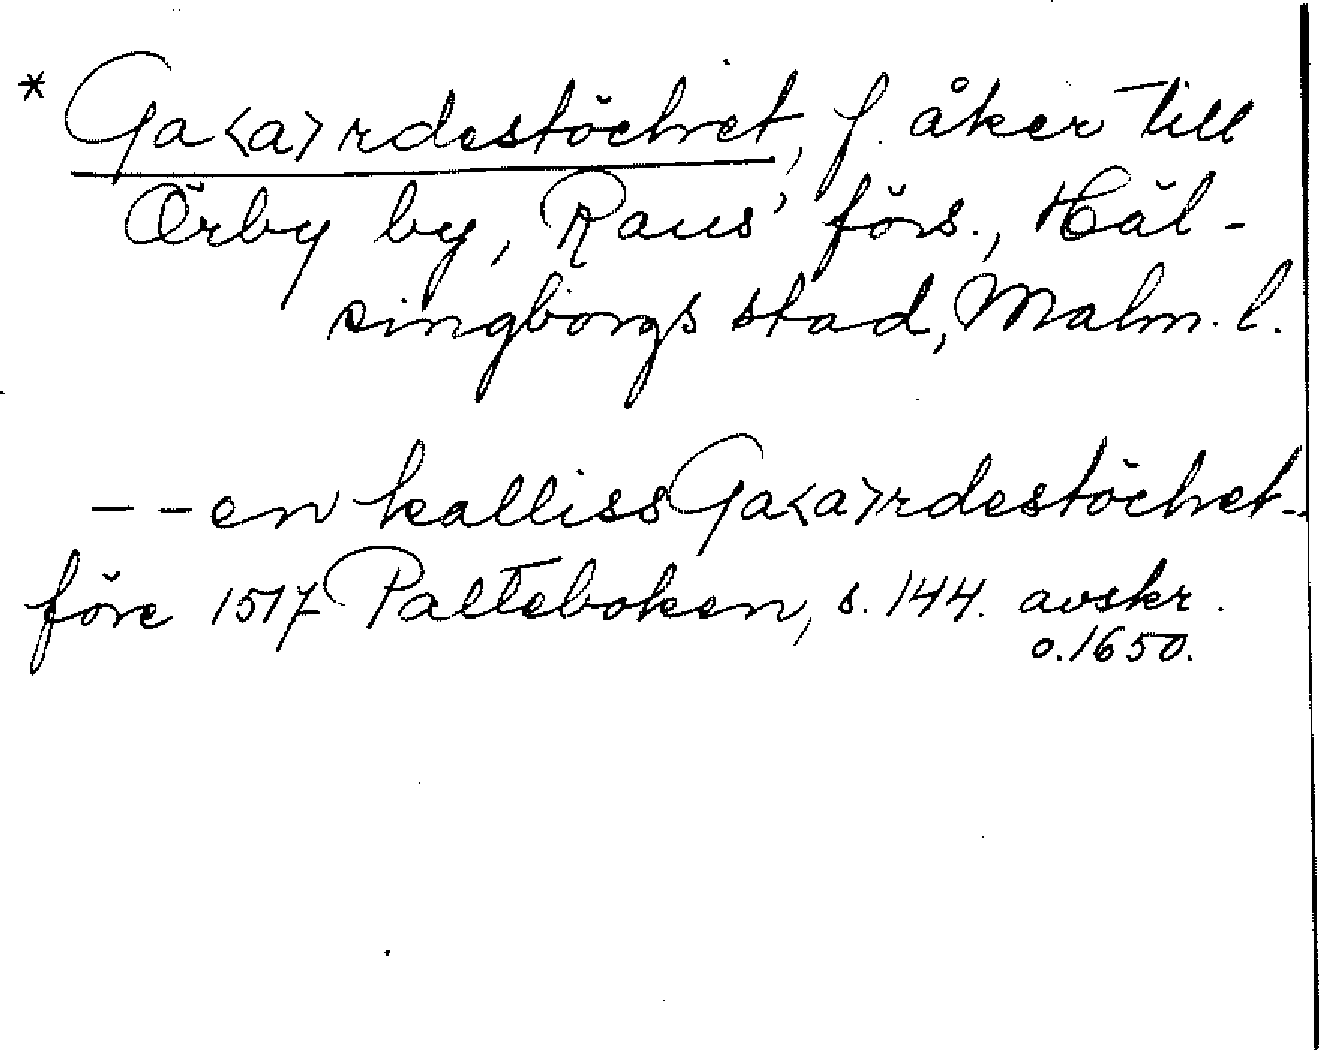 * Ga<a>rdestöchet, f. åker till
Örby by, Raus' förs., Häl-
singborgs stad, Malm. l.
-- en kalliss Ga<a>rdestöchet-.
före 1517 Palteboken, s. 144. avskr.
o. 1650.